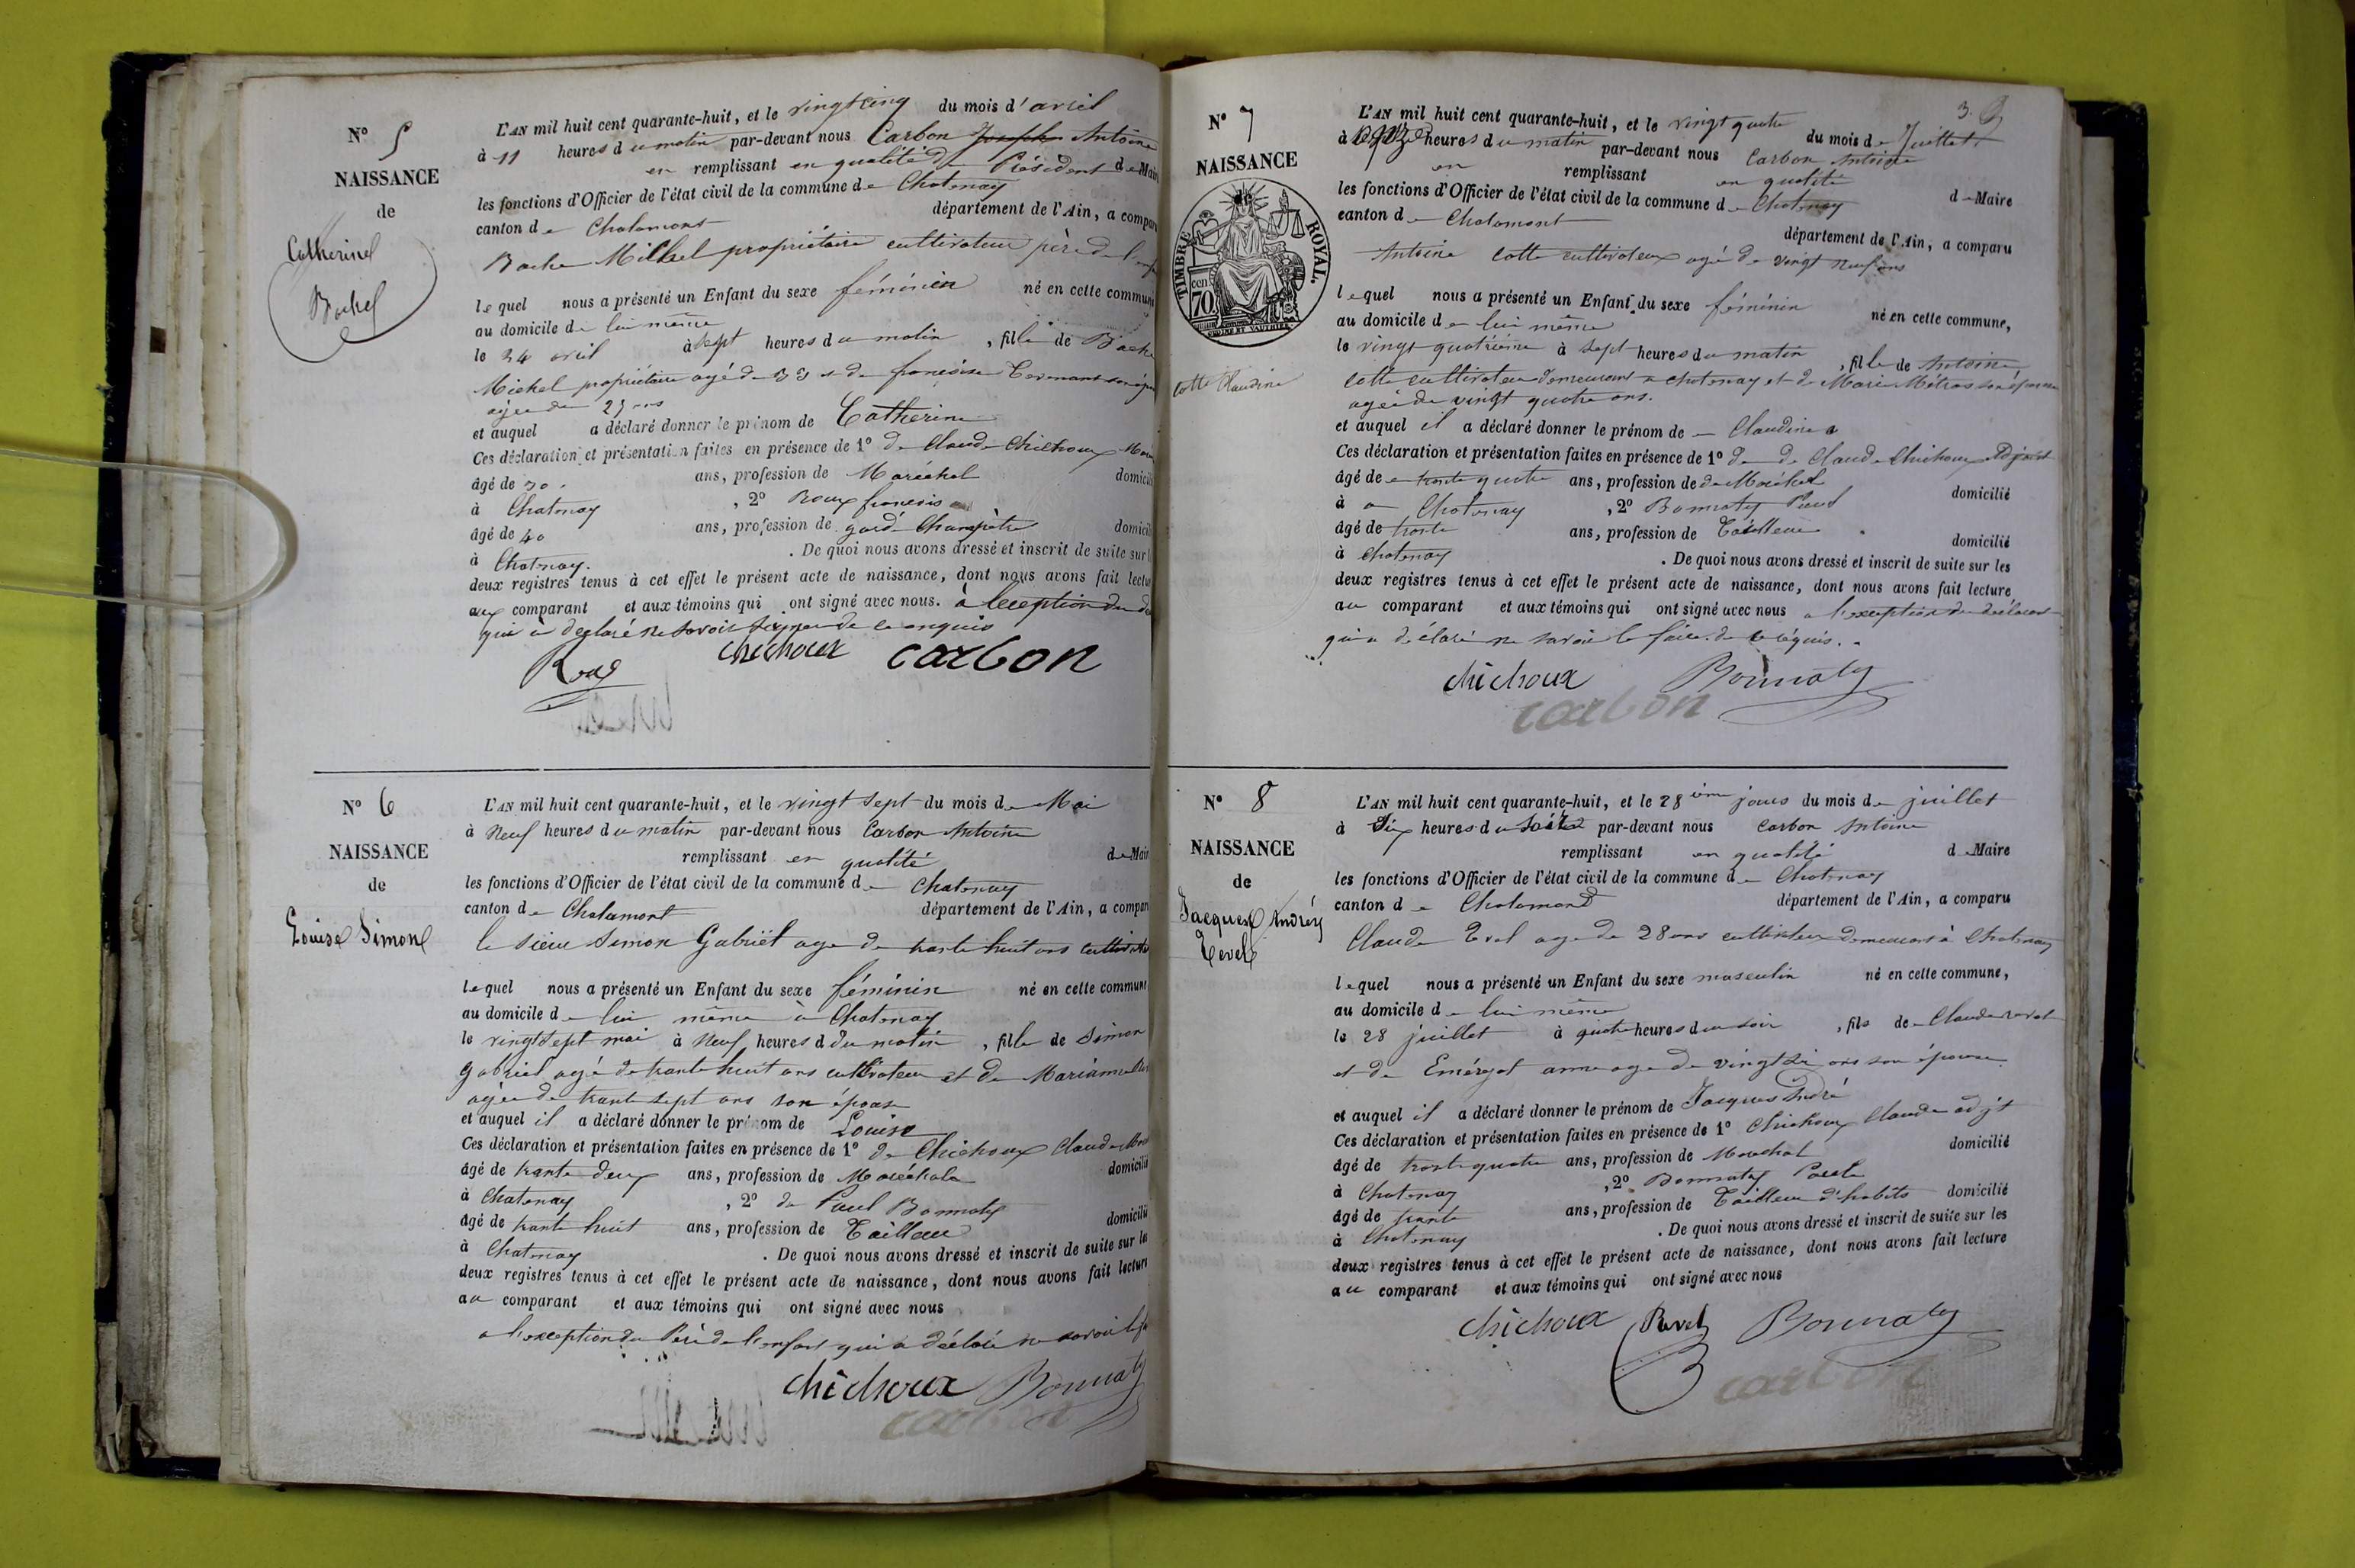 N° 5
NAISSANCE
de
Catherine
Bachel
L'AN mil huit cent quarante-huit, et le vingt cinq du mois d'avril
à 11 heures du matin par-devant nous Carbon Joseph Antoine
en remplissant en qualité de Président de Mair
les fonctions d'Officier de l'état civil de la commune de Chatenay
canton de Chalamont département de l'Ain, a compar
Michel propriétaire cultivateur père de l'enf
lequel nous a présenté un Enfant du sexe féminin né en cette commun
au domicile de lui même
le 24 avril à sept heures du matin, fille de
Michel propriétaire agé de 33 et de françoise
agée de ans
et auquel a déclaré donner le prénom de Catherine
Ces déclaration et présentation faites en présence de 1° de Claude Chichoux
âgé de 30 ans, profession de Maréchal domicili
à Chatenay, 2° Roux françois
âgé de 40 ans, profession de gard Champêtre domicili
à Chatenay. De quoi nous avons dressé et inscrit de suite sur l
deux registres tenus à cet effet le présent acte de naissance, dont nous avons fait lectu
au comparant et aux témoins qui ont signé avec nous. à leception du
qui à déclaré ne savoir signer de ce enquis
Roux chichoux carbon
N° 6
NAISSANCE
de
Louise Simon
L'AN mil huit cent quarante-huit, et le vingt sept du mois de Mai
à Neuf heures du matin par-devant nous Carbon Antoine
remplissant en qualité de Mair
les fonctions d'Officier de l'état civil de la commune de Chatenay
canton de Chalamont département de l'Ain, a compar
le sieur Simon Gabriel age de trante huit ans
lequel nous a présenté un Enfant du sexe féminin né en cette commune
au domicile de lui même à Chatenay
le vingt sept mai à Neuf heures d du matin, fille de Simon
Gabriel agé de trante huit ans cultivateur et de
agée de trante sept ans son épouse
et auquel il a déclaré donner le prénom de Louise
Ces déclaration et présentation faites en présence de 1° de Chichoux Claude
âgé de trante deux ans, profession de Maréchale domicilié
à Chatenay, 2° de Paul Bonnaty
âgé de trante huit ans, profession de Tailleur domicilié
à Chatenay. De quoi nous avons dressé et inscrit de suite sur le
deux registres tenus à cet effet le présent acte de naissance, dont nous avons fait lecture
au comparant et aux témoins qui ont signé avec nous
a l'exception du Père de l'enfant qui a déclaré ne savoir
chichoux Bonnaty
carbon
3.
N° 7
NAISSANCE
TIMBRE ROYAL.
70 cen
Cotte Claudine
L'AN mil huit cent quarante-huit, et le vingt quatre du mois de Juillet
à onze heures du matin par-devant nous Carbon Antoine
en remplissant en qualité de Maire
les fonctions d'Officier de l'état civil de la commune de Chatenay
canton de Chalamont département de l'Ain, a comparu
Antoine Cotte cultivateur agé de vingt neuf ans
lequel nous a présenté un Enfant du sexe féminin né en cette commune,
au domicile de lui même
le vingt quatrième à sept heures du matin, fille de Antoine
Cotte cultivateur demeurant a chatenay et de Marie Métras son épouse
agée de vingt quatre ans.
et auquel il a déclaré donner le prénom de Claudine
Ces déclaration et présentation faites en présence de 1° de de Claude Chichoux Adjoint
âgé de trante quatre ans, profession de de Maréchal domicilié
à a Chatenay, 2° Bonnaty Paul
âgé de trante ans, profession de Tailleur domicilié
à Chatenay. De quoi nous avons dressé et inscrit de suite sur les
deux registres tenus à cet effet le présent acte de naissance, dont nous avons fait lecture
au comparant et aux témoins qui ont signé avec nous a l'exception du déclarant
qui a déclaré ne savoir le faire de ce réquis.
chichoux Bonnaty
carbon
N° 8
NAISSANCE
de
Jacques André
Revel
L'AN mil huit cent quarante-huit, et le 28 ième jours du mois de juillet
à Six heures du Soir par-devant nous Carbon Antoine
remplissant en qualité de Maire
les fonctions d'Officier de l'état civil de la commune de Chatenay
canton de Chalamont département de l'Ain, a comparu
Claude age de 28 ans cultivateur demeurant à Chatenay
lequel nous a présenté un Enfant du sexe masculin né en cette commune,
au domicile de lui même
le 28 juillet à quatre heures du soir, fils de Claude revel
et de anne age de vingt six ans son épouse
et auquel il a déclaré donner le prénom de Jacques André
Ces déclaration et présentation faites en présence de 1° Chichoux Claude adjt
âgé de trante quatre ans, profession de Marechal domicilié
à Chatenay, 2° Bonnaty Paul
âgé de trante ans, profession de Tailleur d'habits domicilié
à Chatenay. De quoi nous avons dressé et inscrit de suite sur les
deux registres tenus à cet effet le présent acte de naissance, dont nous avons fait lecture
au comparant et aux témoins qui ont signé avec nous
chichoux Revel Bonnaty
carbon